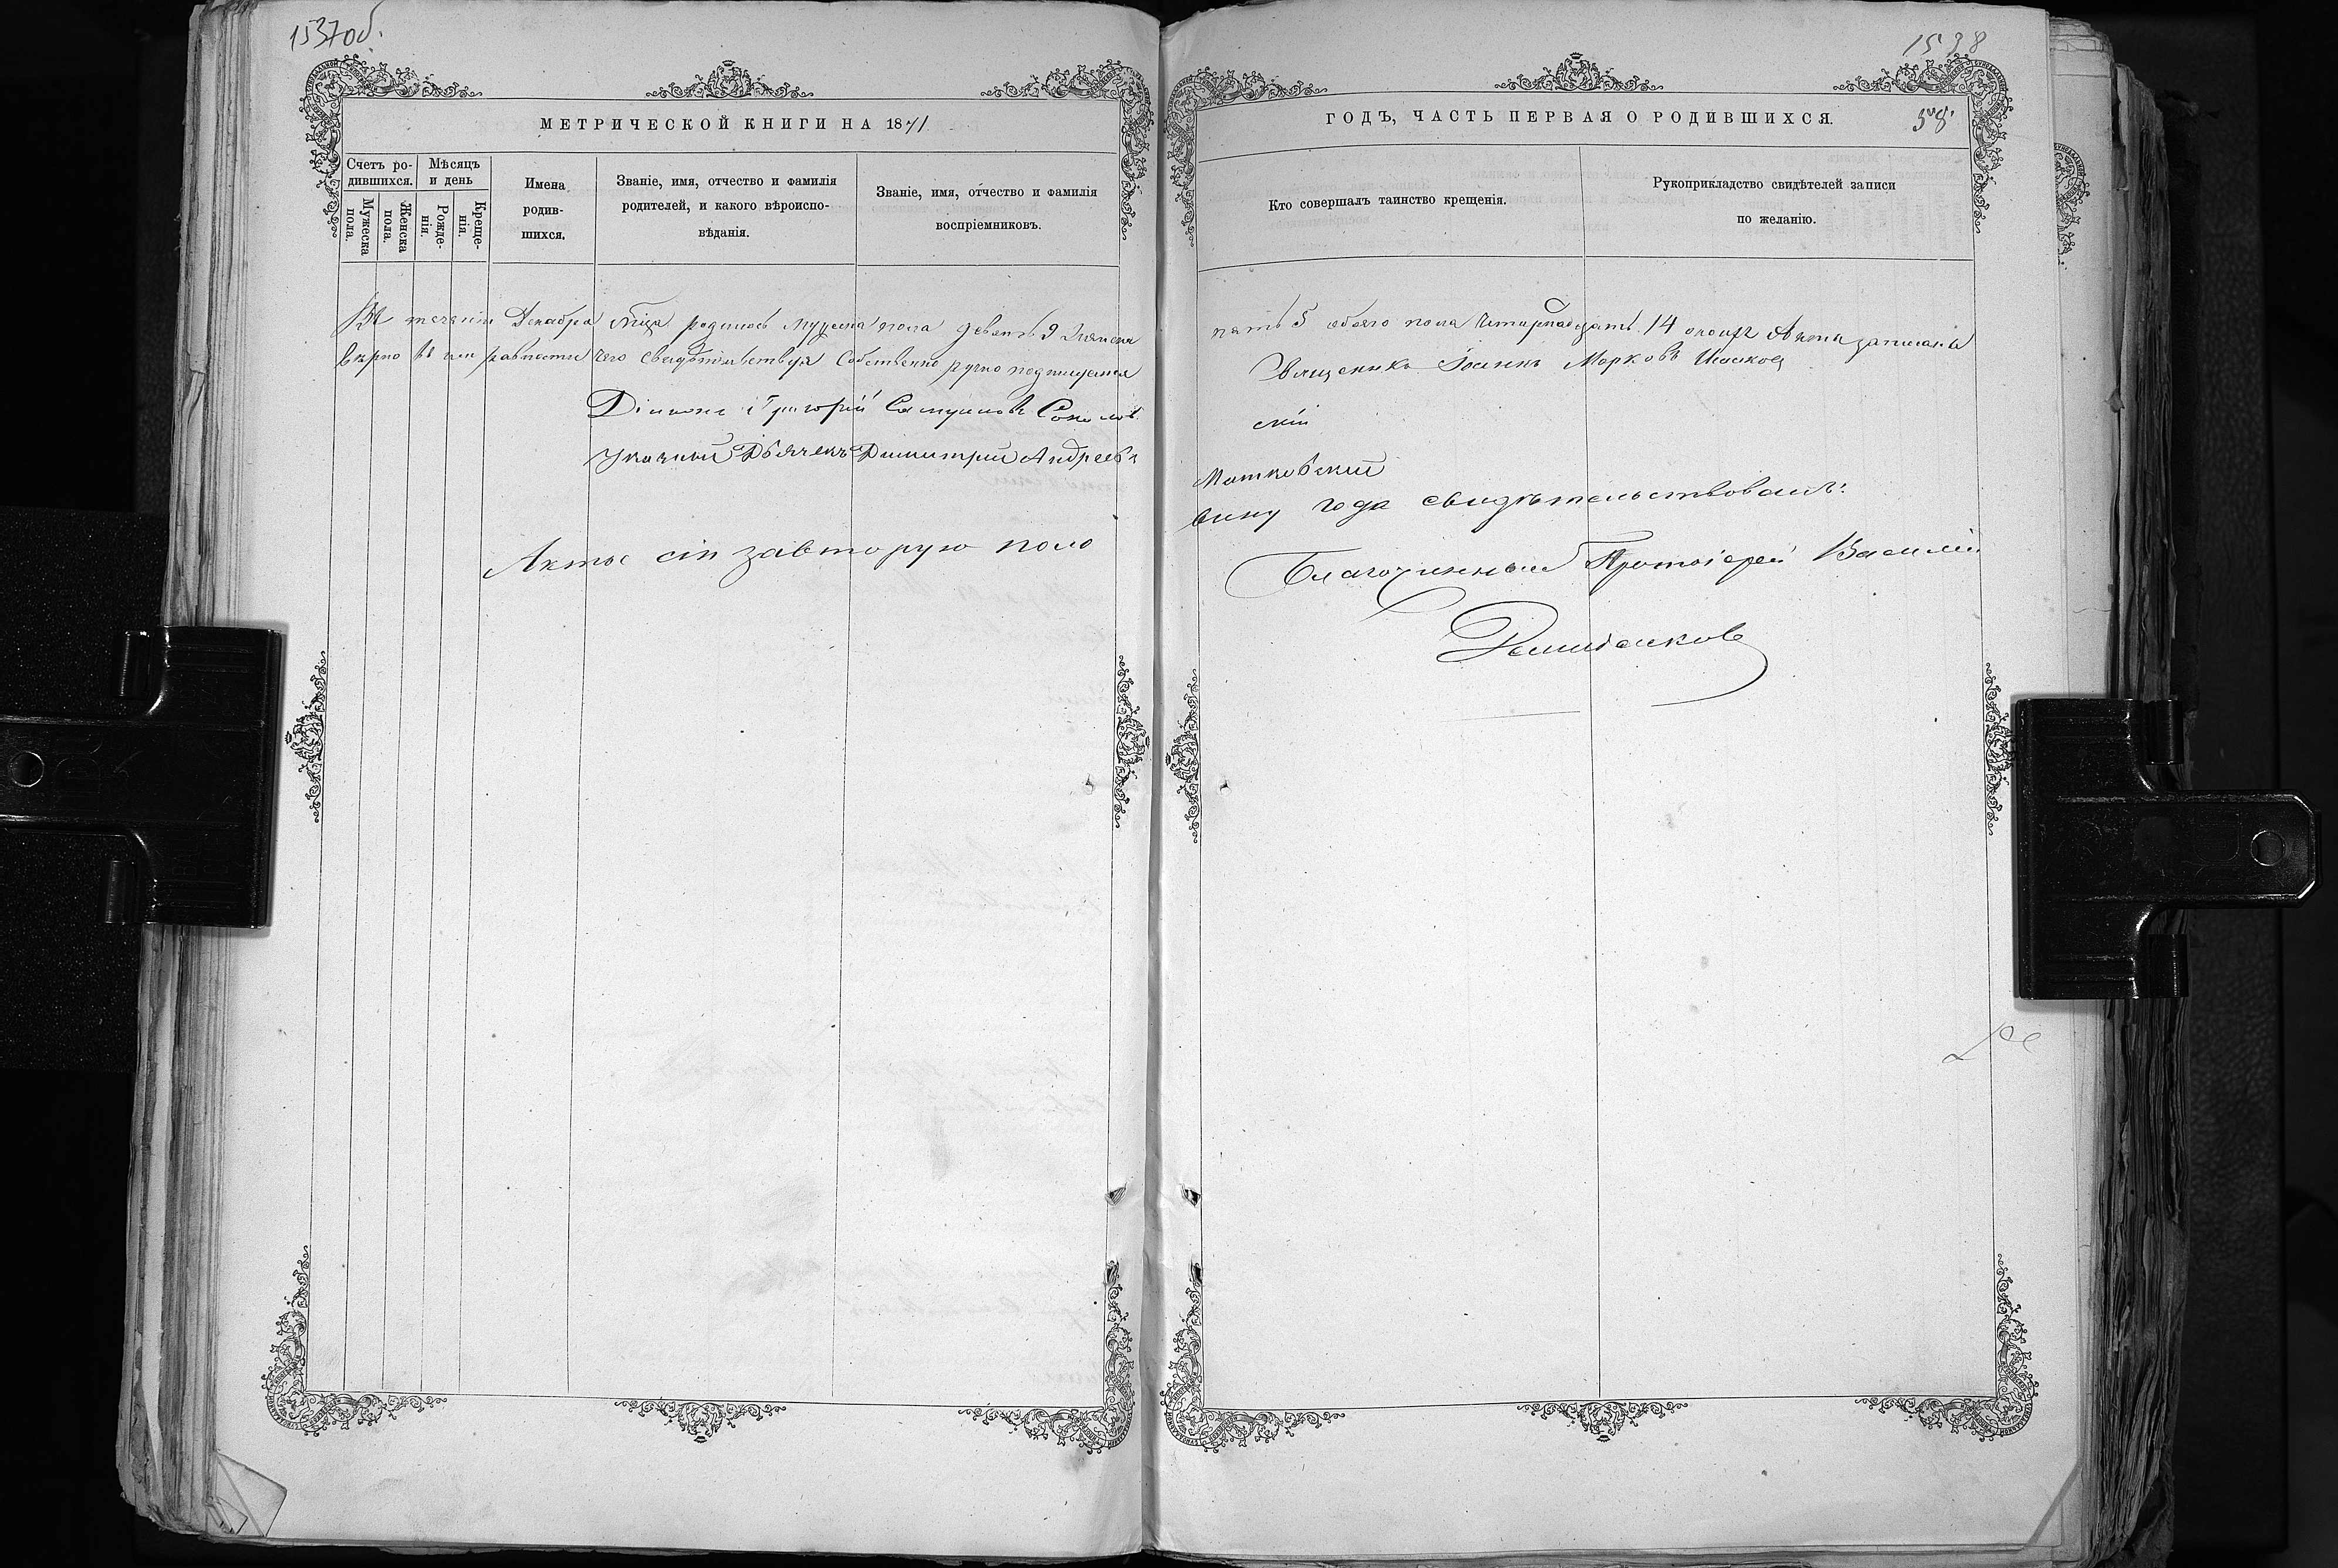 1537об.
МЕТРИЧЕСКОЙ КНИГИ НА 1871
Счетъ ро-
дившихся.
Мужеска
пола.
Женска
пола.
Мѣсяцъ
и день
Рожде-
нія.
Креще-
нія.
Имена
родив-
шихся.
Званіе, имя, отчество и фамилія
родителей, и какого вѣроиспо-
вѣданія.
Званіе, имя, отчество и фамилія
воспріемниковъ.
Въ теченіи Декабря м̃ца родилось мужеска пола девять 9 женска
вѣрно въ чем свидѣтельствуя собственно ручно подписуемся
Діаконъ Григорій Самуиловъ Соколов
Указный Дьячекъ Димитрій Андреевъ
Акты сіи за вторую поло
1538
ГОДЪ, ЧАСТЬ ПЕРВАЯ О РОДИВШИХСЯ.
58
Кто совершалъ таинство крещенія.
Рукоприкладство свидѣтелей записи
по желанію.
пять 5 обоего пола четырнадцать 14 Акты записаны
Священникъ Іоаннъ Марковъ
скій
Матковскій
вину года свидѣтельствовалъ:
Благочинный Протоіерей Василій